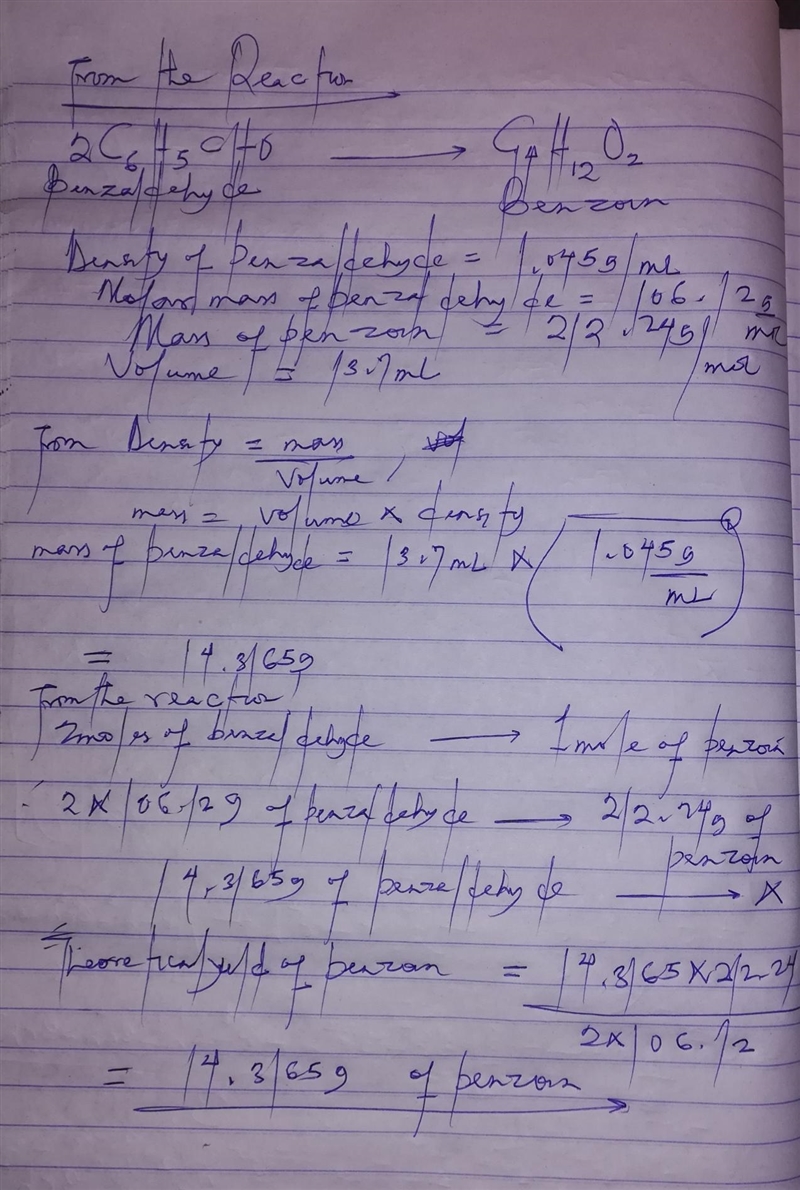 From the Reaction
2C6H5CHO → C14H12O2
Benzaldehyde Benzoin
Density of benzaldehyde = 1.045g/mL
Molar mass of benzaldehyde = 106.12g/mol
Mass of benzoin = 212.24g/mol
Volume = 13.7mL
From Density = mass/volume,
mass = volume × density
mass of benzaldehyde = 13.7mL × (1.045g/mL)
= 14.3165g
From the reaction
2moles of benzaldehyde → 1mole of benzoin
∴ 2×106.12g of benzaldehyde → 212.24g of benzoin
14.3165g of benzaldehyde → X
Theoretical yield of benzoin = 14.3165×212.24 / 2×106.12
= 14.3165g of benzoin